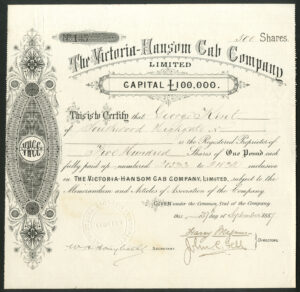 500 Shares.
The Victoria-Hansom Cab Company
LIMITED
CAPITAL £100,000.
This is to Certify that George Kent
of Southwood Highgate N
is the Registered Proprietor of
Five Hundred Shares of One Pound each
fully paid up numbered to in
THE VICTORIA-HANSOM CAB COMPANY, LIMITED, subject to the
Memorandum and Articles of Association of the Company.
GIVEN under the Common Seal of the Company
this day of September 1887
SECRETARY
DIRECTORS.